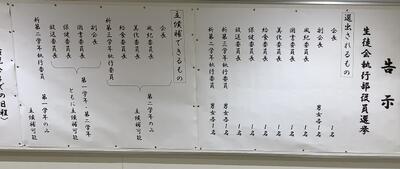 告示
生徒会執行部役員選挙
選出されるもの
会長 1名
副会長 男女各1名
風紀委員長 1名
美化委員長 1名
給食委員長 1名
保健委員長 1名
放送委員長 1名
図書委員長 1名
新第三学年執行委員 男女各1名
新第二学年執行委員 男女各1名
立候補できるもの
会長
風紀委員長
美化委員長
給食委員長
新第三学年執行委員
第二学年のみ
立候補可能
副会長
図書委員長
保健委員長
放送委員長
第一学年・第二学年
ともに立候補可能
新第二学年執行委員
第一学年のみ
立候補可能
の日程)